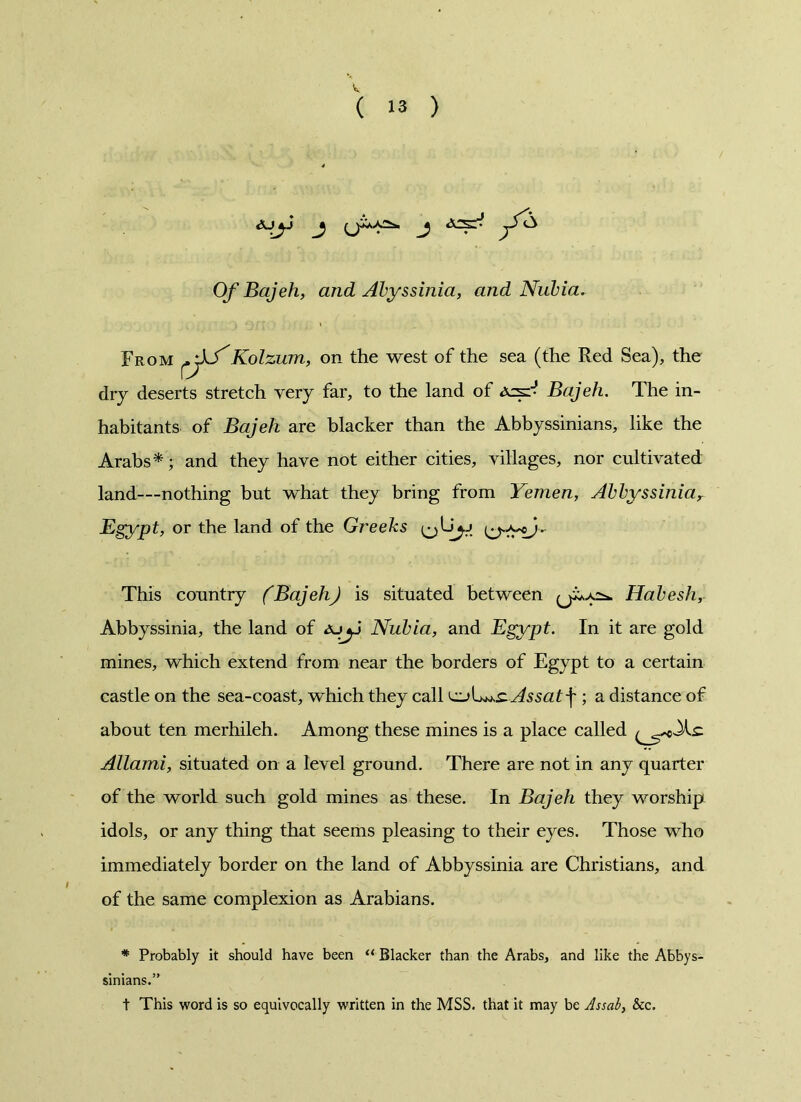 ( 13 )
ذكر بجه و حبش و نوبه
Of Bajeh, and Abyssinia, and Nubia.
From كلزم Kolzum, on the west of the sea (the Red Sea), the
dry deserts stretch very far, to the land of بجه Bajeh. The in-
habitants of Bajeh are blacker than the Abbyssinians, like the
Arabs*; and they have not either cities, villages, nor cultivated
land---nothing but what they bring from Yemen, Abbyssinia,
Egypt, or the land of the Greeks زمين يونان.
This country (Bajeh) is situated between حبش Habesh,
Abbyssinia, the land of نوبه Nubia, and Egypt. In it are gold
mines, which extend from near the borders of Egypt to a certain
castle on the sea-coast, which they call عسات Assat†; a distance of
about ten merhileh. Among these mines is a place called علامي
Allami, situated on a level ground. There are not in any quarter
of the world such gold mines as these. In Bajeh they worship
idols, or any thing that seems pleasing to their eyes. Those who
immediately border on the land of Abbyssinia are Christians, and
of the same complexion as Arabians.
* Probably it should have been “Blacker than the Arabs, and like the Abbys-
sinians.”
† This word is so equivocally written in the MSS. that it may be Assab, &c.